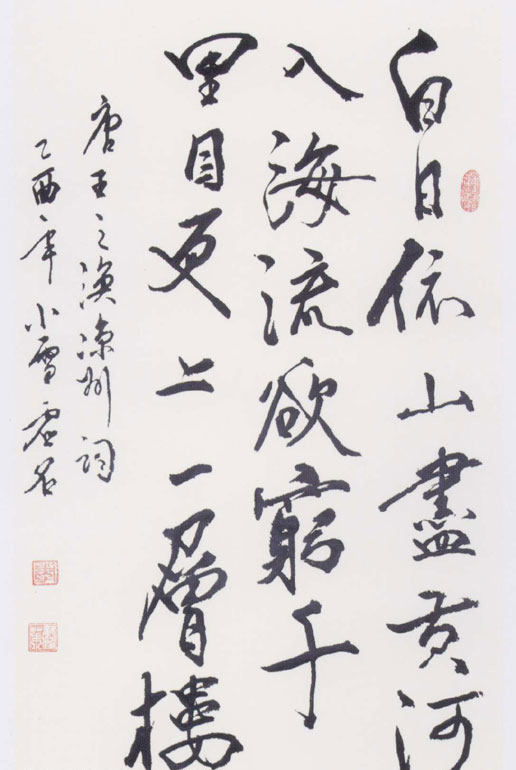 白日依山盡黃河
入海流欲窮千
里目更上一層樓
唐王之渙涼州詞
乙酉年小雪虛名